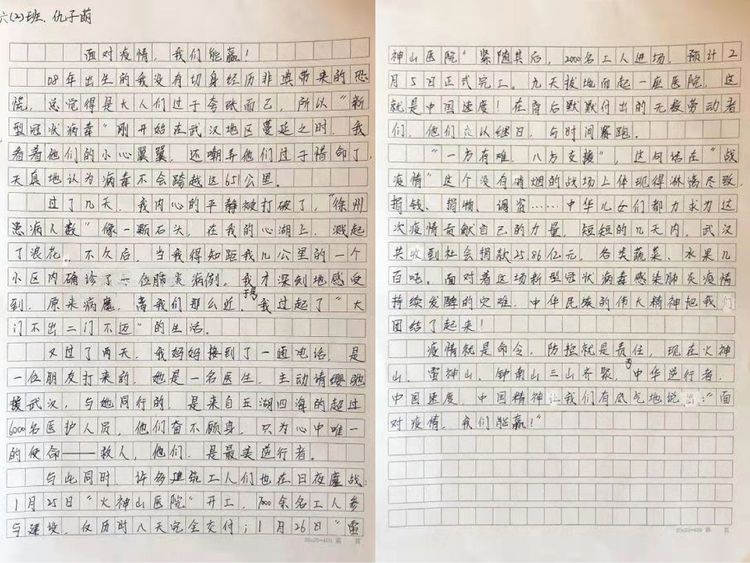 六(2)班、仇子萌
面对疫情，我们能赢！
08年出生的我没有切身经历非典带来的恐
慌，总觉得是大人们过于夸张而已，所以“新
型冠状病毒”刚开始在武汉地区蔓延之时，我
看着他们的小心翼翼，还嘲弄他们过于惜命了，
天真地认为病毒不会跨越这651公里。
过了几天，我内心的平静被打破了，“徐州
患病人数”像一颗石头，在我的心湖上，溅起
了浪花。不久后，当我得知距我几公里的一个
小区内确诊了一位肺炎病例。我才深刻地感受
到，原来病魔，离我们那么近，我过起了“大
门不出二门不迈”的生活。
又过了两天，我妈妈接到了一通电话，是
一位朋友打来的，她是一名医生，主动请缨驰
援武汉，与她同行的，是来自五湖四海的超过
6000名医护人员，他们奋不顾身，只为心中唯一
的使命——救人，他们，是最美逆行者。
与此同时，许多建筑工人们也在日夜鏖战：
1月25日“火神山医院”开工，7000余名工人参
与建设，仅历时八天完全交付；1月26日“雷
神山医院”紧随其后，2000名工人进场，预计2
月5日正式完工。九天拔地而起一座医院，这
就是中国速度！在背后默默付出的无疲劳动者
们，他们夜以继日，与时间赛跑。
“一方有难，八方支援”，这句话在“战
疫情”这个没有硝烟的战场上体现得淋漓尽致，
捐钱、捐物、调资……中华儿女们都力求为这
次疫情贡献自己的力量，短短的几天内，武汉
共收到社会捐款25.86亿元，各类蔬菜、水果几
百吨。面对着这场新型冠状病毒感染肺炎疫情
持续发酵的灾难，中华民族的伟大精神把我们
团结了起来！
疫情就是命令，防控就是责任，现在火神
山、雷神山、钟南山三山齐聚，中华逆行者，
中国速度，中国精神让我们有底气地说出：“面
对疫情，我们能赢！”